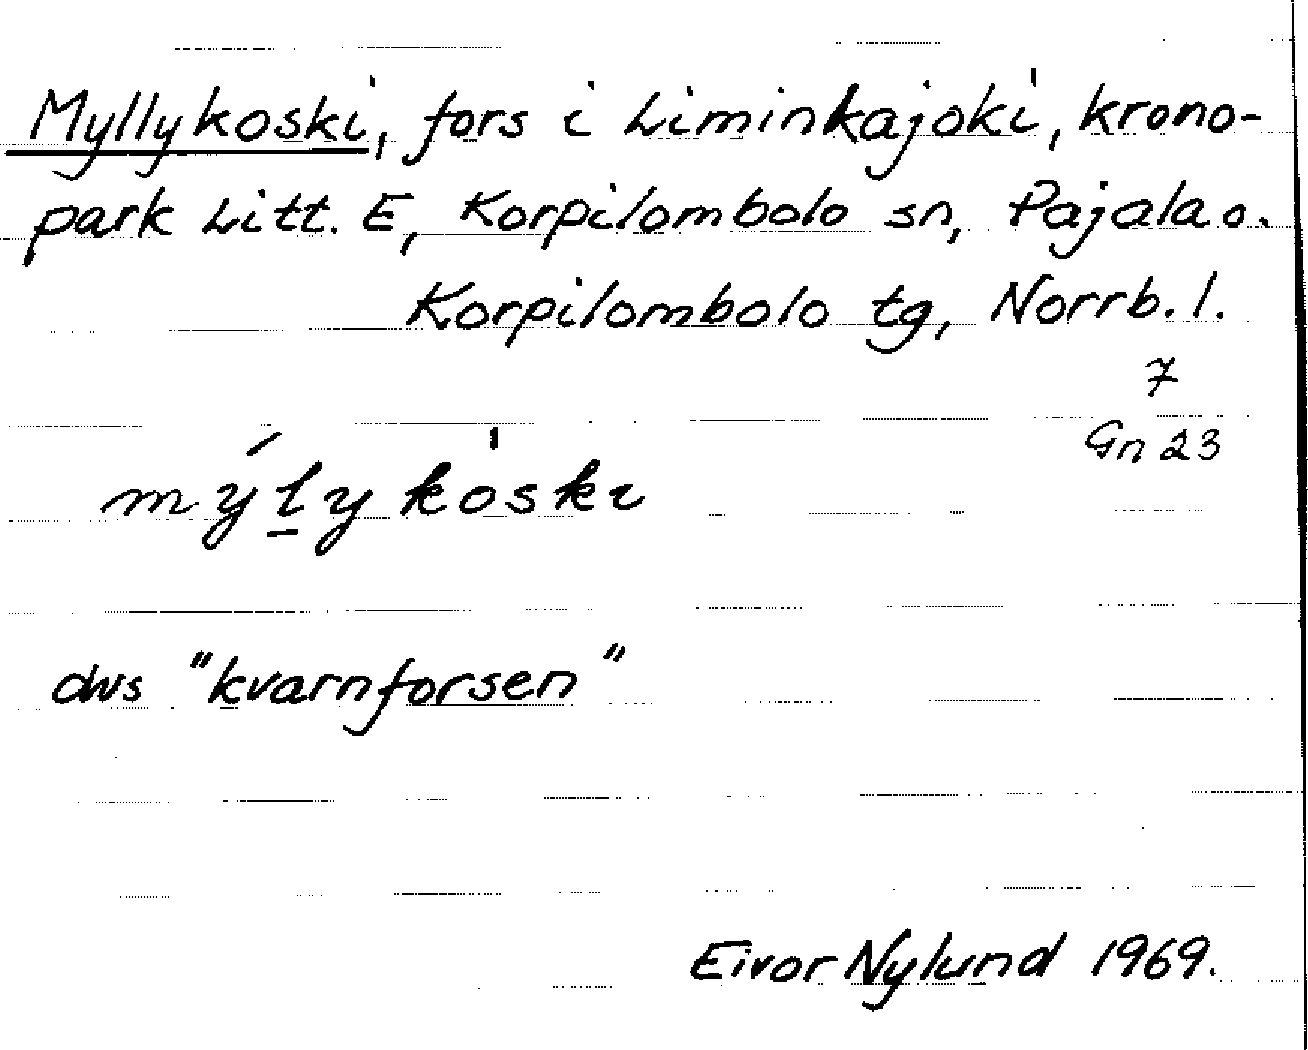 Myllykoski, fors i Liminkajoki, krono-
park Litt. E, Korpilombolo sn, Pajala o.
Korpilombolo tg, Norrb. l.
7
Gn 23
mý́l̲ykòski
dvs "kvarnforsen"
Eivor Nylund 1969.